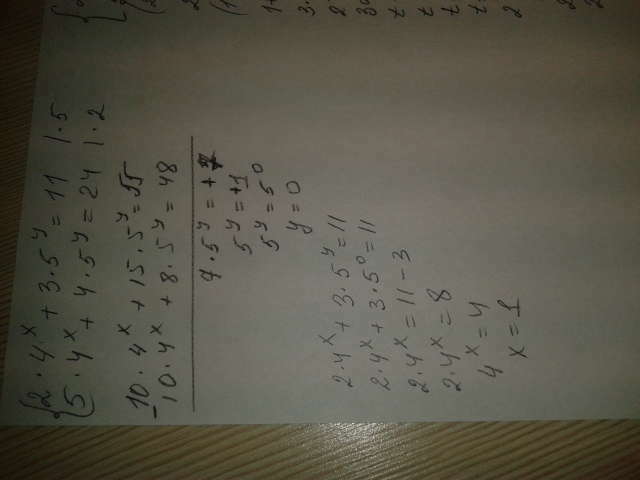 2 · 4^x + 3 · 5^y = 11 | · 5
5 · 4^x + 4 · 5^y = 24 | · 2
10 · 4^x + 15 · 5^y = 55
10 · 4^x + 8 · 5^y = 48
7 · 5^y = + 7
5^y = +1
5^y = 5^0
y = 0
2 · 4^x + 3 · 5^y = 11
2 · 4^x + 3 · 5^0 = 11
2 · 4^x = 11 - 3
2 · 4^x = 8
4^x = 4
x = 1